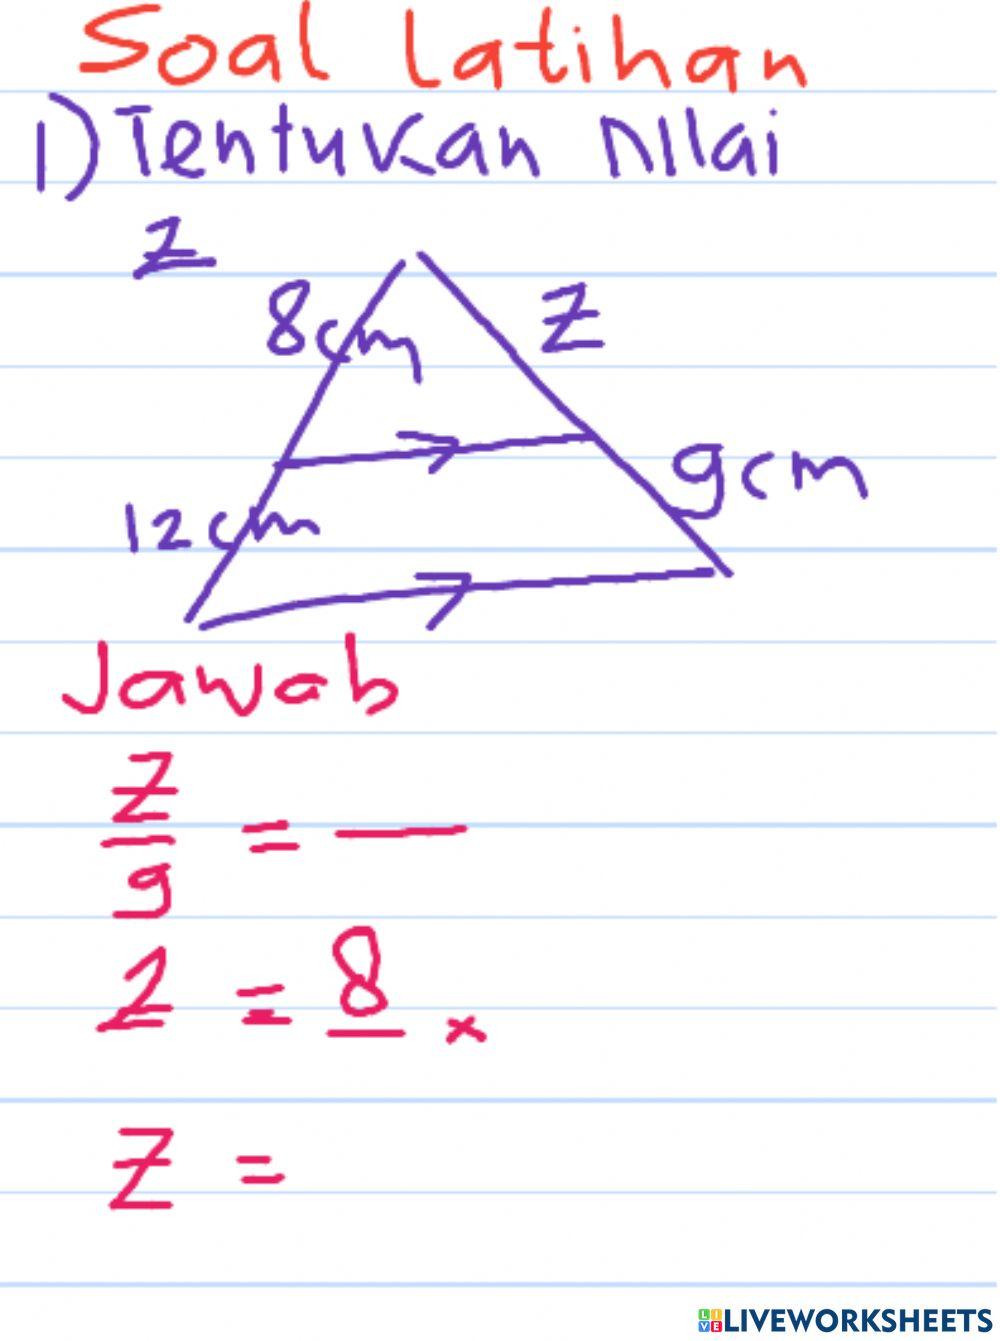 Soal Latihan
1) Tentukan nilai
z
8cm
z
9cm
12cm
Jawab
z/9 = —
z = 8/ ×
z =
LIVEWORKSHEETS